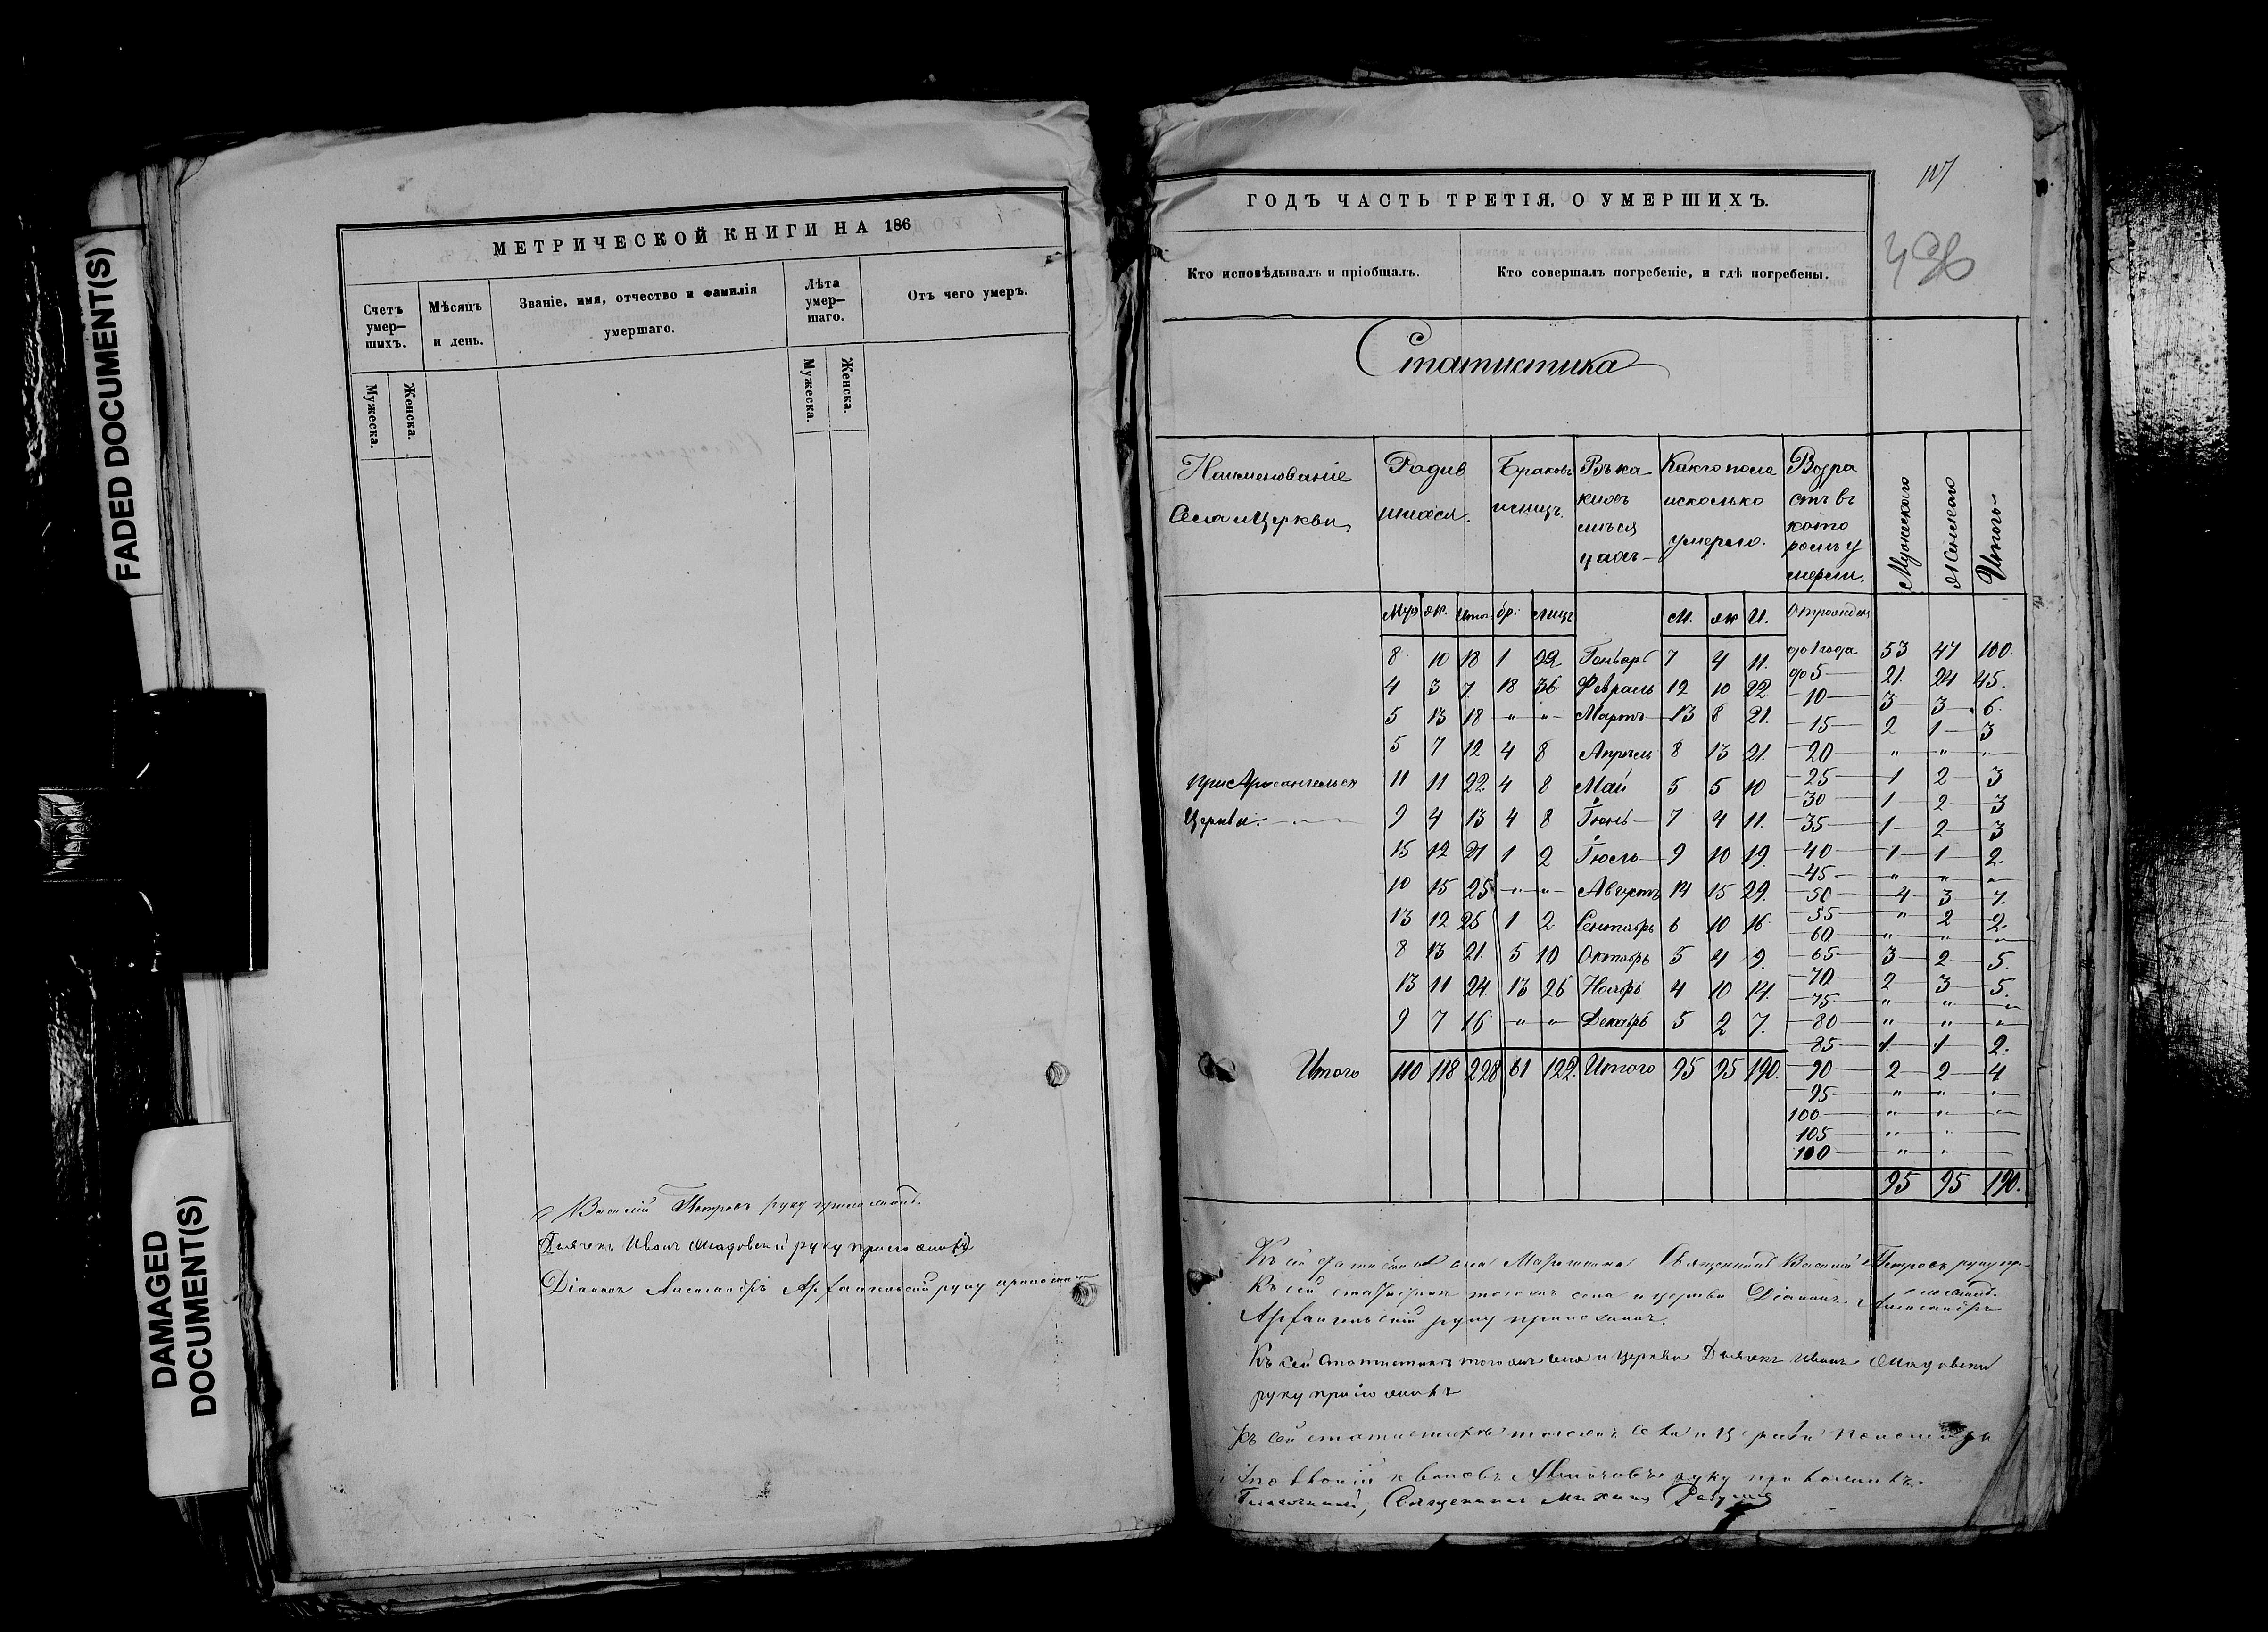 FADED DOCUMENT(S)
DAMAGED
DOCUMENT(S)
МЕТРИЧЕСКОЙ КНИГИ НА 186
Счетъ умер-шихъ.
Мѣсяцъ и день.
Званіе, имя, отчество и фамилія умершаго.
Лѣта умер-шаго.
Отъ чего умеръ.
Мужеска. Женска.
Мужеска. Женска.
Василій Петровъ руку приложилъ.
Дьячекъ Иванъ руку приложилъ
Діаконъ Александръ Архангельскій руку приложилъ
ГОДЪ ЧАСТЬ ТРЕТІЯ, О УМЕРШИХЪ.
Кто исповѣдывалъ и пріобщалъ.
Кто совершалъ погребеніе, и гдѣ погребены.
Статистика
Наименованіе
села и Церкви
Родив
шихся.
Браковъ
и лицъ.
Въ ка
кихъ
мѣся
цахъ
Какого пола
и сколько
умерло.
Возра
стъ въ
кото
ромъ у
мерли.
Мужескаго
Женскаго
Итого
Муж. ж. Итог. бр. лицъ М. ж И. Отрожденія
8 10 18 1 22 Генварь 7 4 11.
4 3 7 18 36 Февраль 12 10 22
5 13 18 " " Мартъ 13 8 21.
5 7 12 4 8 Апрѣль 8 13 21.
при Архангельск 11 11 22 4 8 Май 5 5 10
Церкви. 9 4 13 4 8 Іюнь 7 4 11.
15 12 27 1 2 Іюль 9 10 19.
10 15 25 " " Августъ 14 15 29.
13 12 25 1 2 Сентябрь 6 10 16.
8 13 21. 5 10 Октябрь 5 4 9.
13 11 24. 13 26 Ноябрь 4 10 14.
9 7 16 " " Декабрь 5 2 7.
Итого 110 118 228 61 122. Итого 95 95 190.
до 1 года 53 47 100.
до 5 21. 24 45.
10 3 3 6.
15 2 1 3
20 " " "
25 1 2 3
30 1 2 3
35 1 2 3
40 1 1 2.
45 " " "
50 4 3 7.
55 " 2 2.
60 " " "
65 3 2 5.
70 2 3 5.
75 " " "
80 " " "
85 1. 1 2.
90 2 2 4
95 " " "
100 " " "
105 " "
100 " "
95 95 190.
Къ сей села Священникъ Василій Петровъ руку при-
ложилъ.
Къ сей статистикѣ тогожъ села и церкви Діаконъ Александръ
Архангельскій руку приложилъ.
Къ сей статистикѣ тогожъ села и церкви Дьячекъ Иванъ
руку приложилъ
Къ сей статистикѣ тогожъ села и Церкви Пономарь
руку приложилъ.
Благочинный, Священникъ Михаил